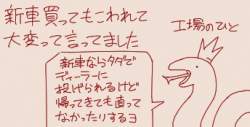 新車買ってもこわれて
大変って言ってました
工場のひと
新車ならタダで
ディーラーに
投げられるけど
帰ってきても直って
なかったりするヨ